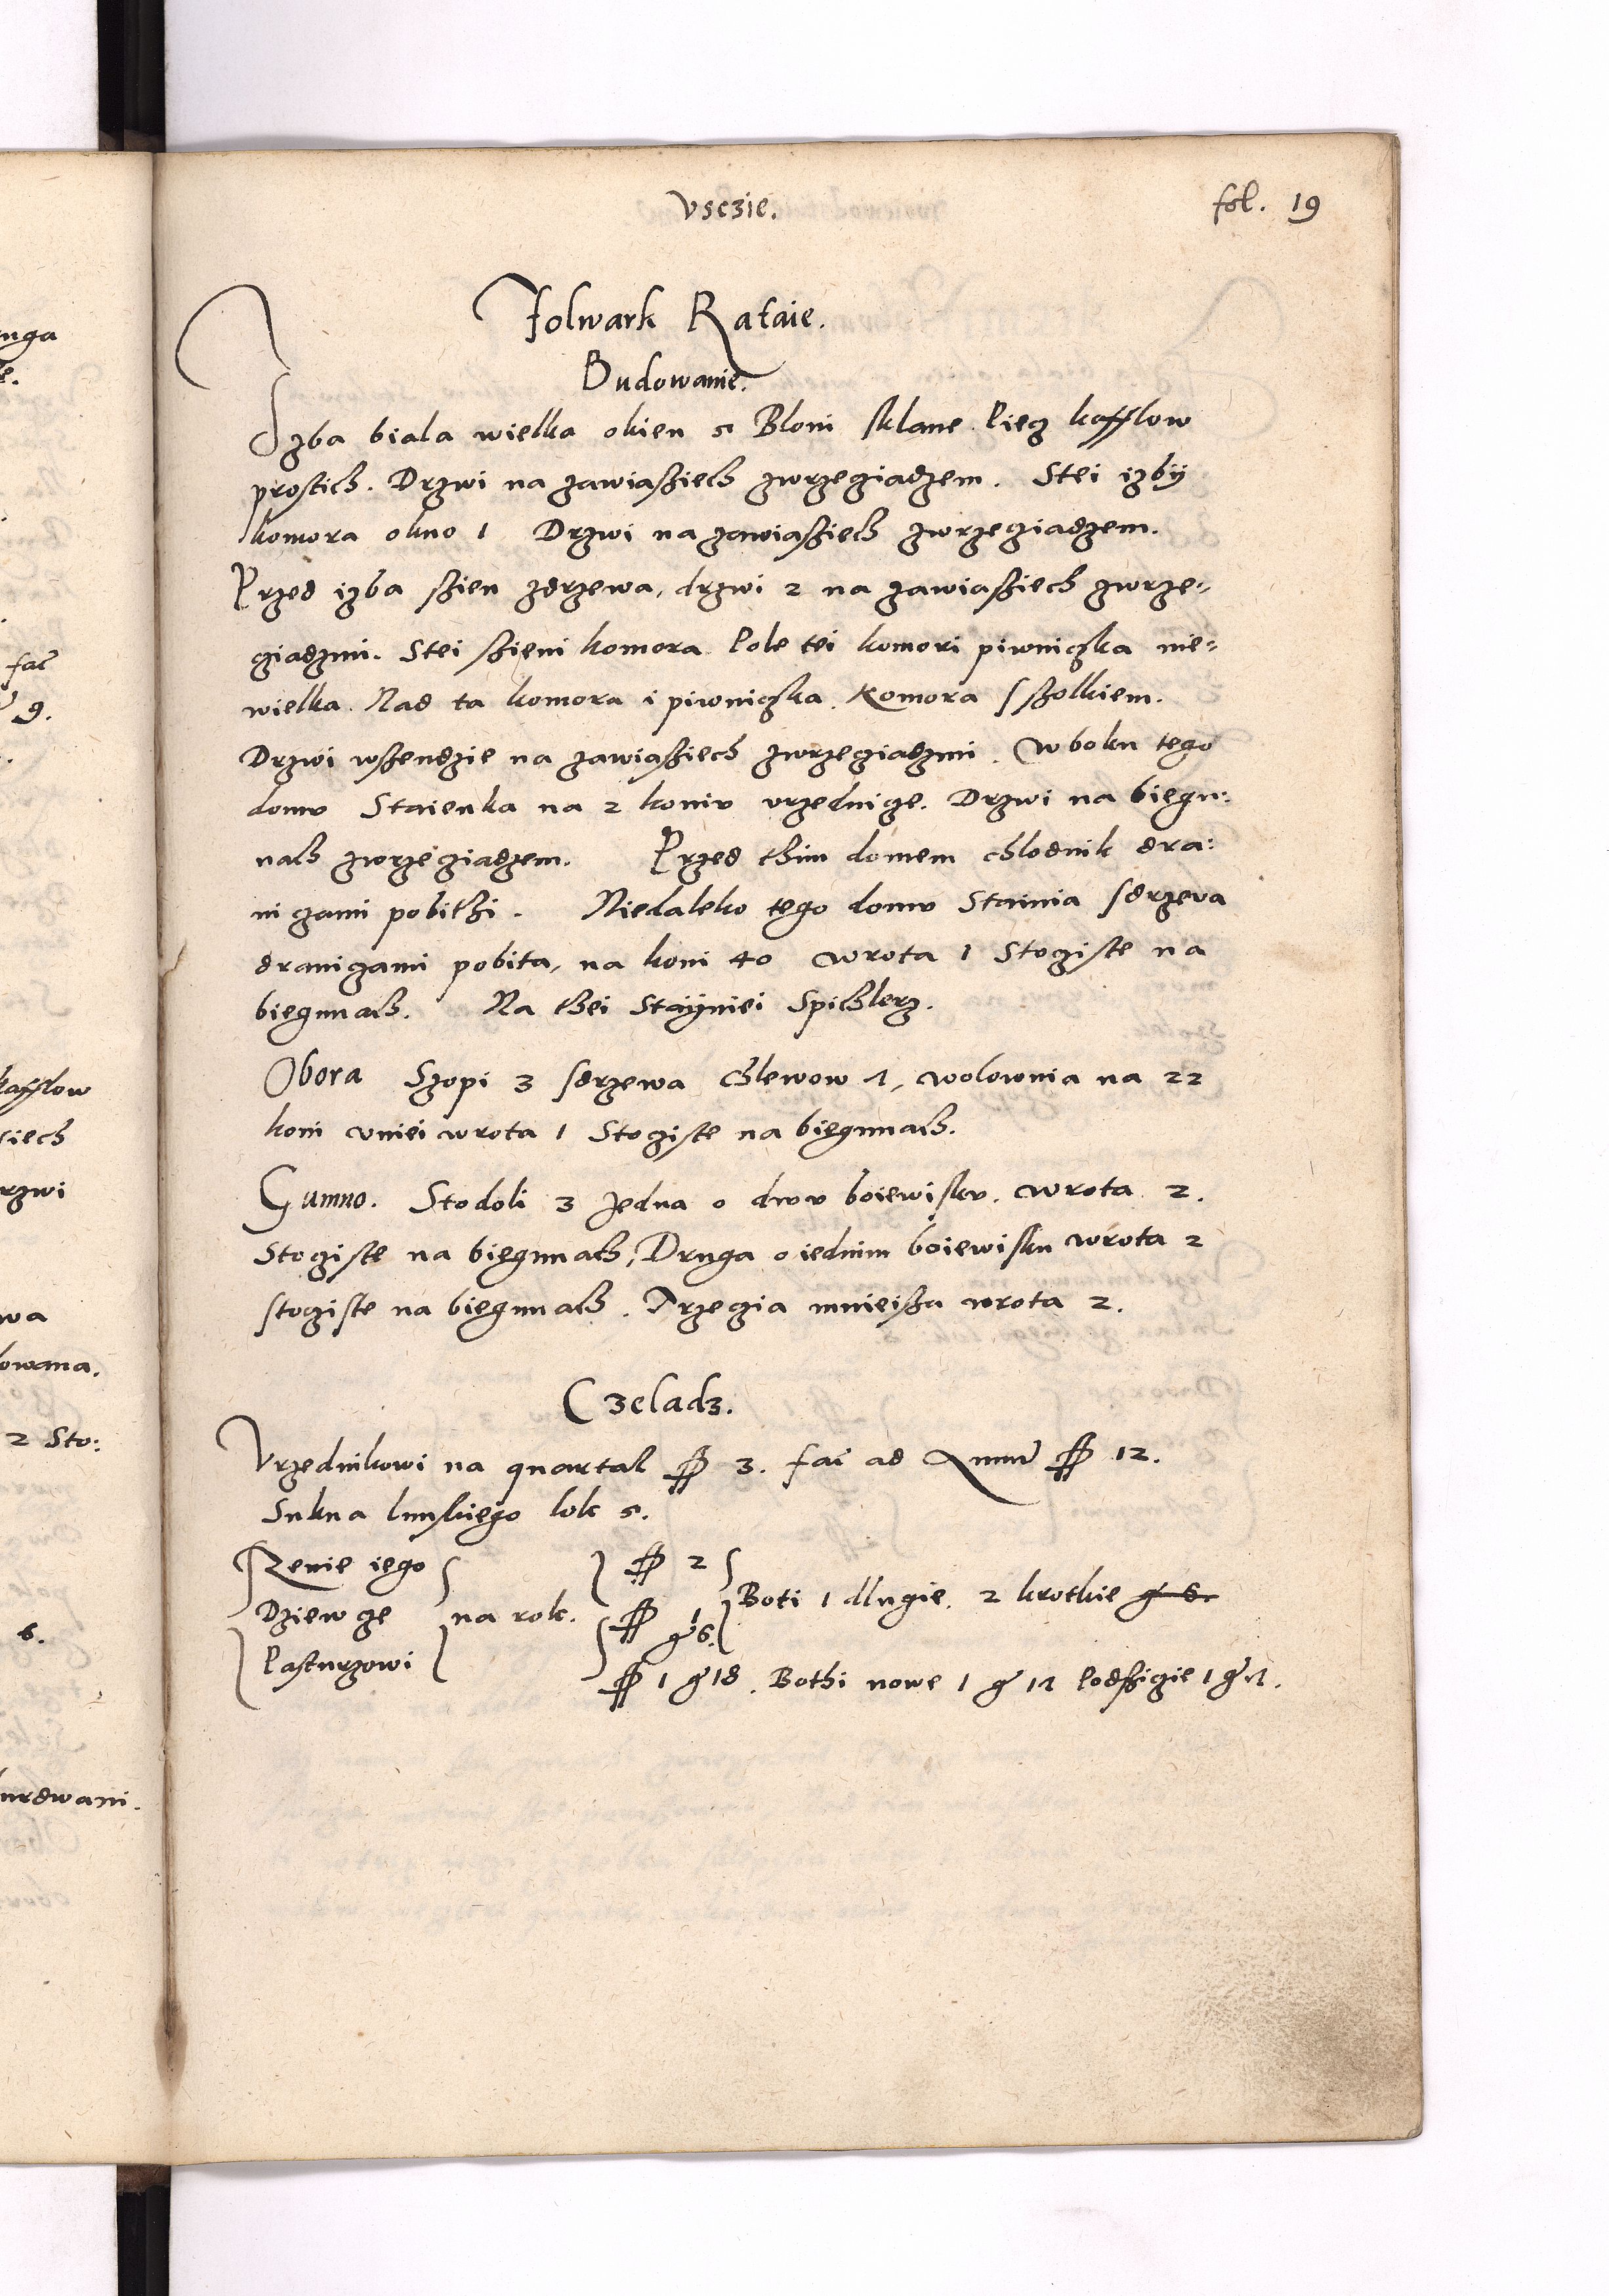 Vsczie.
fol. 19
Folwark Rataie.
Budowanie.
Izba biala wielka okien 5 Bloni sklane Piecz kafflow
prostich. Drzwi na zawiaßiech zwrzecziadzem. Stei izbÿ
komora okno 1 Drzwi na zawiaßiech zwrzecziadzem.
Przed izba ßien zdrzewa, drzwi 2 na zawiaßiech zwrze-
cziadzmi. Stei ßieni komora Pole tei komori piwniczka nie-
wielka. Nad ta komora i piwniczka Komora s ßolkiem.
Drzwi wßendzie na zawiaßiech zwrzecziadzmi. W boku tego
domv Staienka na 2 koniv vrzednicze. Drzwi na biegu:
nach zwrzecziadzem. Przed thim domem chlodnik dra:
niczami pobithi. Niedaleko tego domv Stainia sdrzeva
draniczami pobita, na koni 40 Wrota 1 Stoziste na
biegunach. Na thei Stayniei Spichlerz.
Obora Szopi 3 sdrzewa Chlewow 4, wolownia na 22
koni vniei wrota 1 Stoziste na biegunach.
Gumno. Stodoli 3 Jedna o dwv boiewiskv. Wrota 2.
Stoziste na biegunach, Druga o iednim boiewisku wrota 2
stoziste na biegunach. Trzecia mnieißa wrota 2.
Czeladz.
Vrzednikowi na quartal ff 3. fac ad Annu ff 12.
Sukna lunskiego lok 5.
Zenie iego ff 2
Dziewcze na rok. ff 1 g 6. Boti 1 dlugie, 2 krotkie g 6.
Pasturzowi ff 1 g 18. Bothi nowe 1 g 14 Podßicie 1 g 4.
nga
fac
9.
kafflow
siech
rzwi
wa
lowana.
2 Sto:
6.
urdwani.